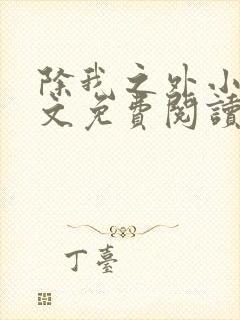 除我之外小
文免費閱讀
丁臺